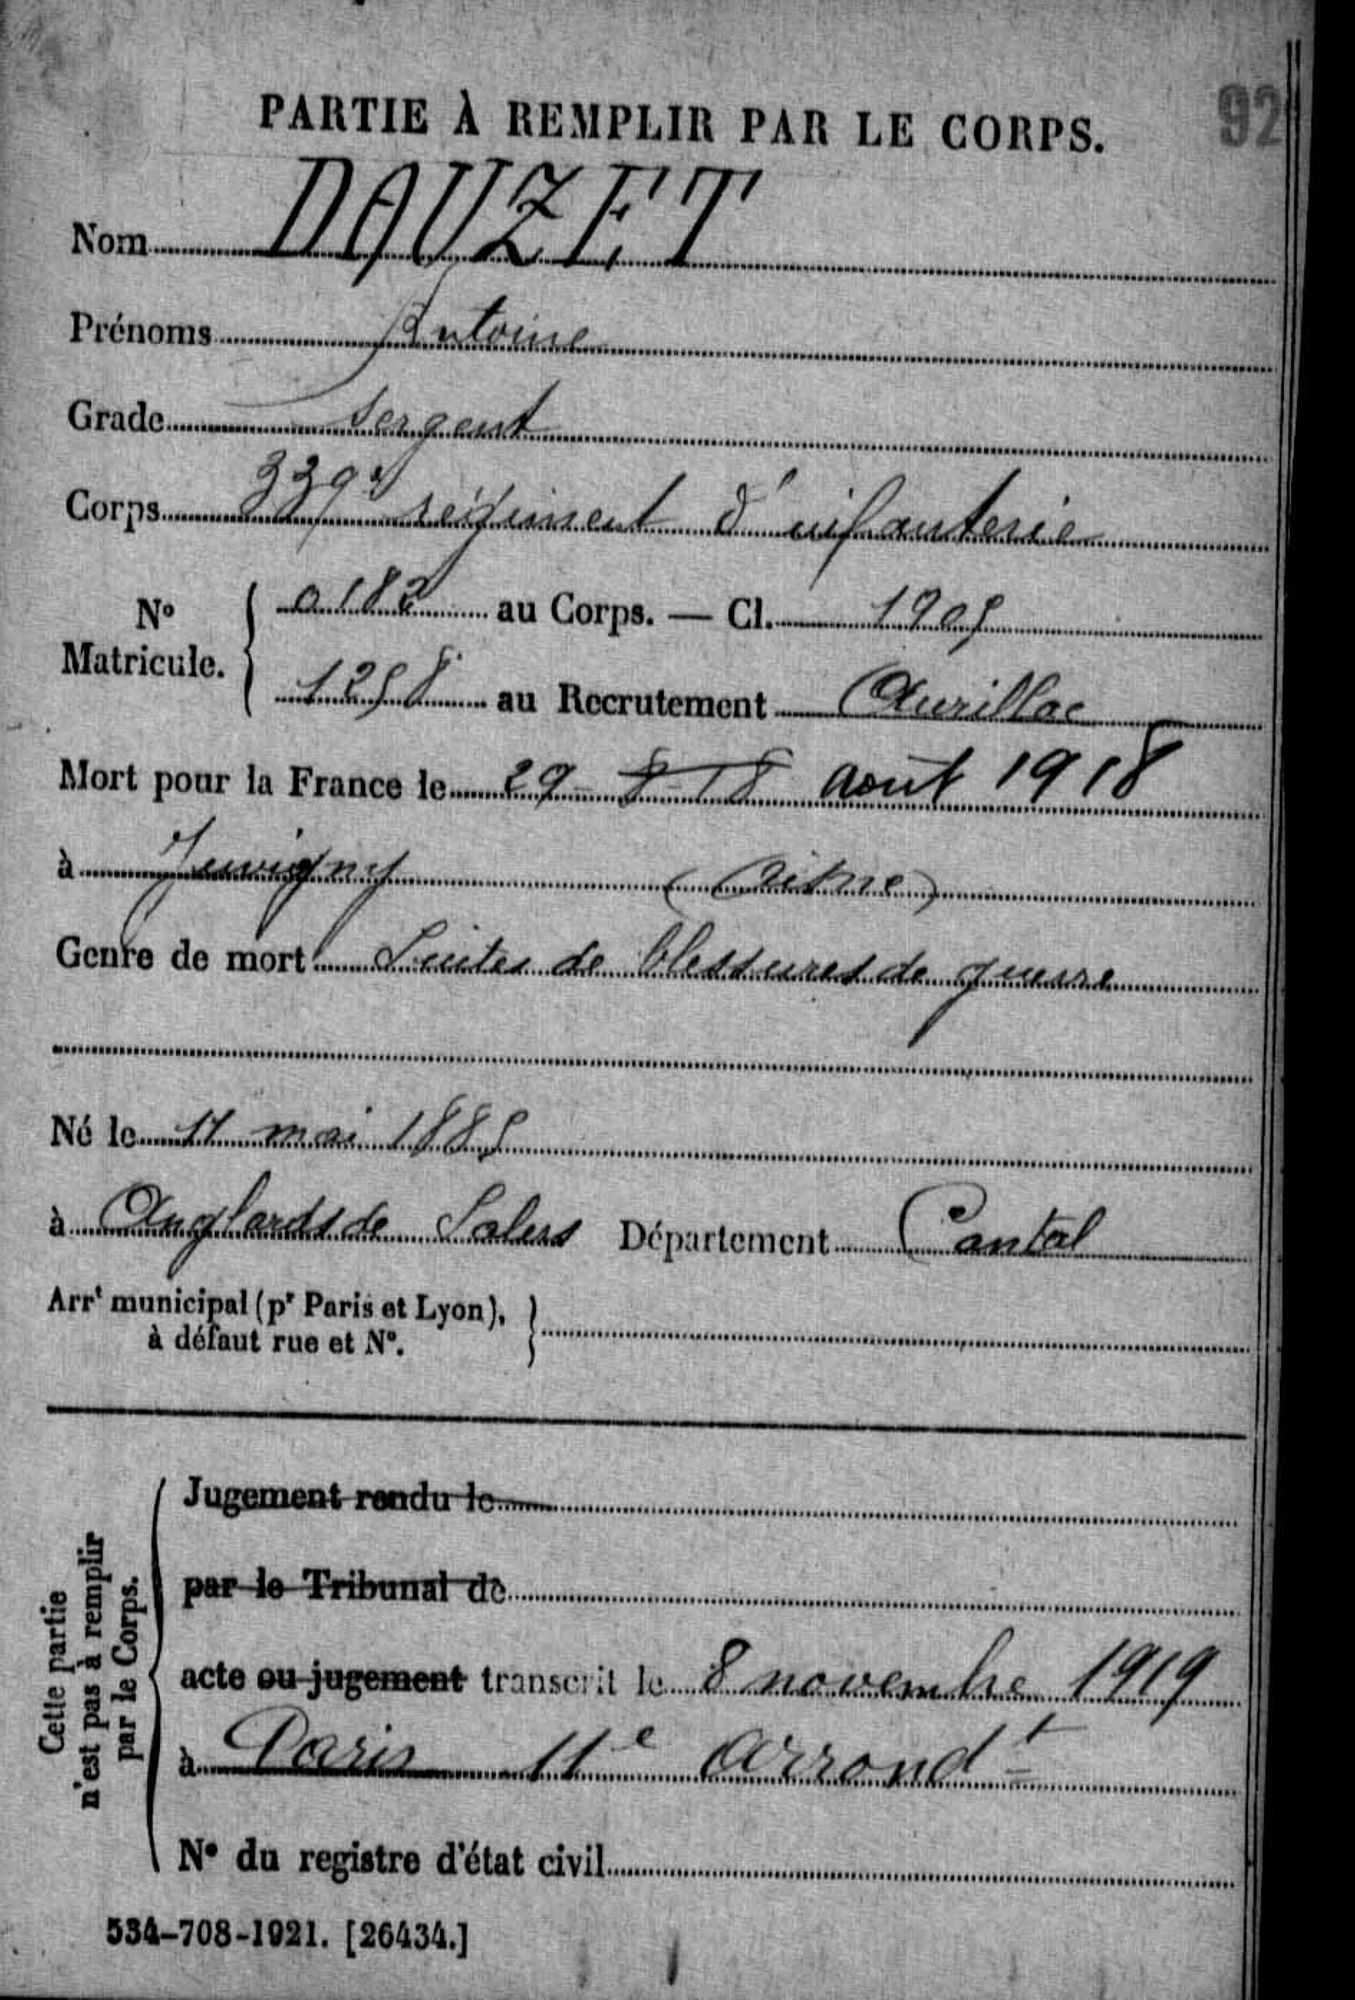 PARTIE À REMPLIR PAR LE CORPS.
92
Nom DAUZET
Prénoms Antoine
Grade Sergent
Corps 339e régiment d'infanterie
No Matricule. { 0182 au Corps. — Cl. 1905
1258 au Recrutement Aurillac
Mort pour la France le 29 - 8 - 18 août 1918
à Juvigny (Aisne)
Genre de mort Suites de blessures de guerre
Né le 11 mai 1885
à Anglards de Salers Département Cantal
Arrt municipal (pr Paris et Lyon), }
à défaut rue et No.
Cette partie
n'est pas à remplir
par le Corps.
Jugement rendu le
par le Tribunal de
acte ou jugement transcrit le 8 novembre 1919
à Paris 11e arrondt
No du registre d'état civil
534-708-1921. [26434.]